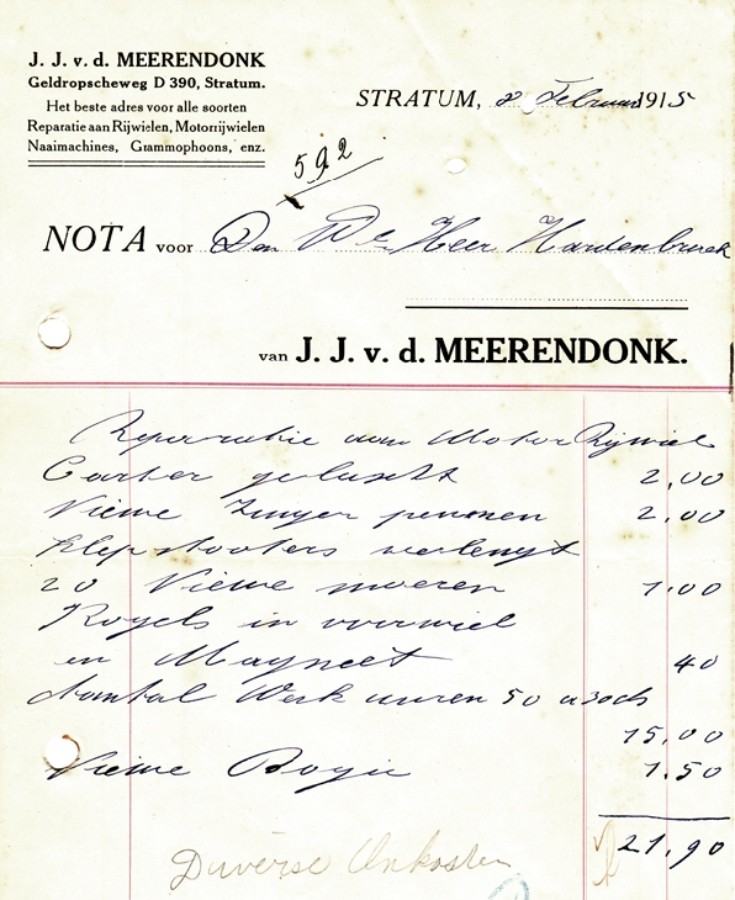 J. J. v. d. MEERENDONK
Geldropscheweg D 390, Stratum.
Het beste adres voor alle soorten
Reparatie aan Rijwielen, Motorrijwielen
Naaimachines, Grammophoons, enz.
STRATUM, 2 Februari 1915
592
NOTA voor Den WE Heer Hardenbroek
van J. J. v. d. MEERENDONK.
Reparatie aan Motor Rijwiel
Carter gelascht 2,00
Nieuwe Zuiger pennen 2,00
Klepstooters verlengt
20 Nieuwe moeren 1,00
Kogels in voorwiel
en Magneet 40
Aantal Werk uuren 50 a 30 ch
15,00
Nieuwe Bogie 1.50
21,90
Diverse Onkosten